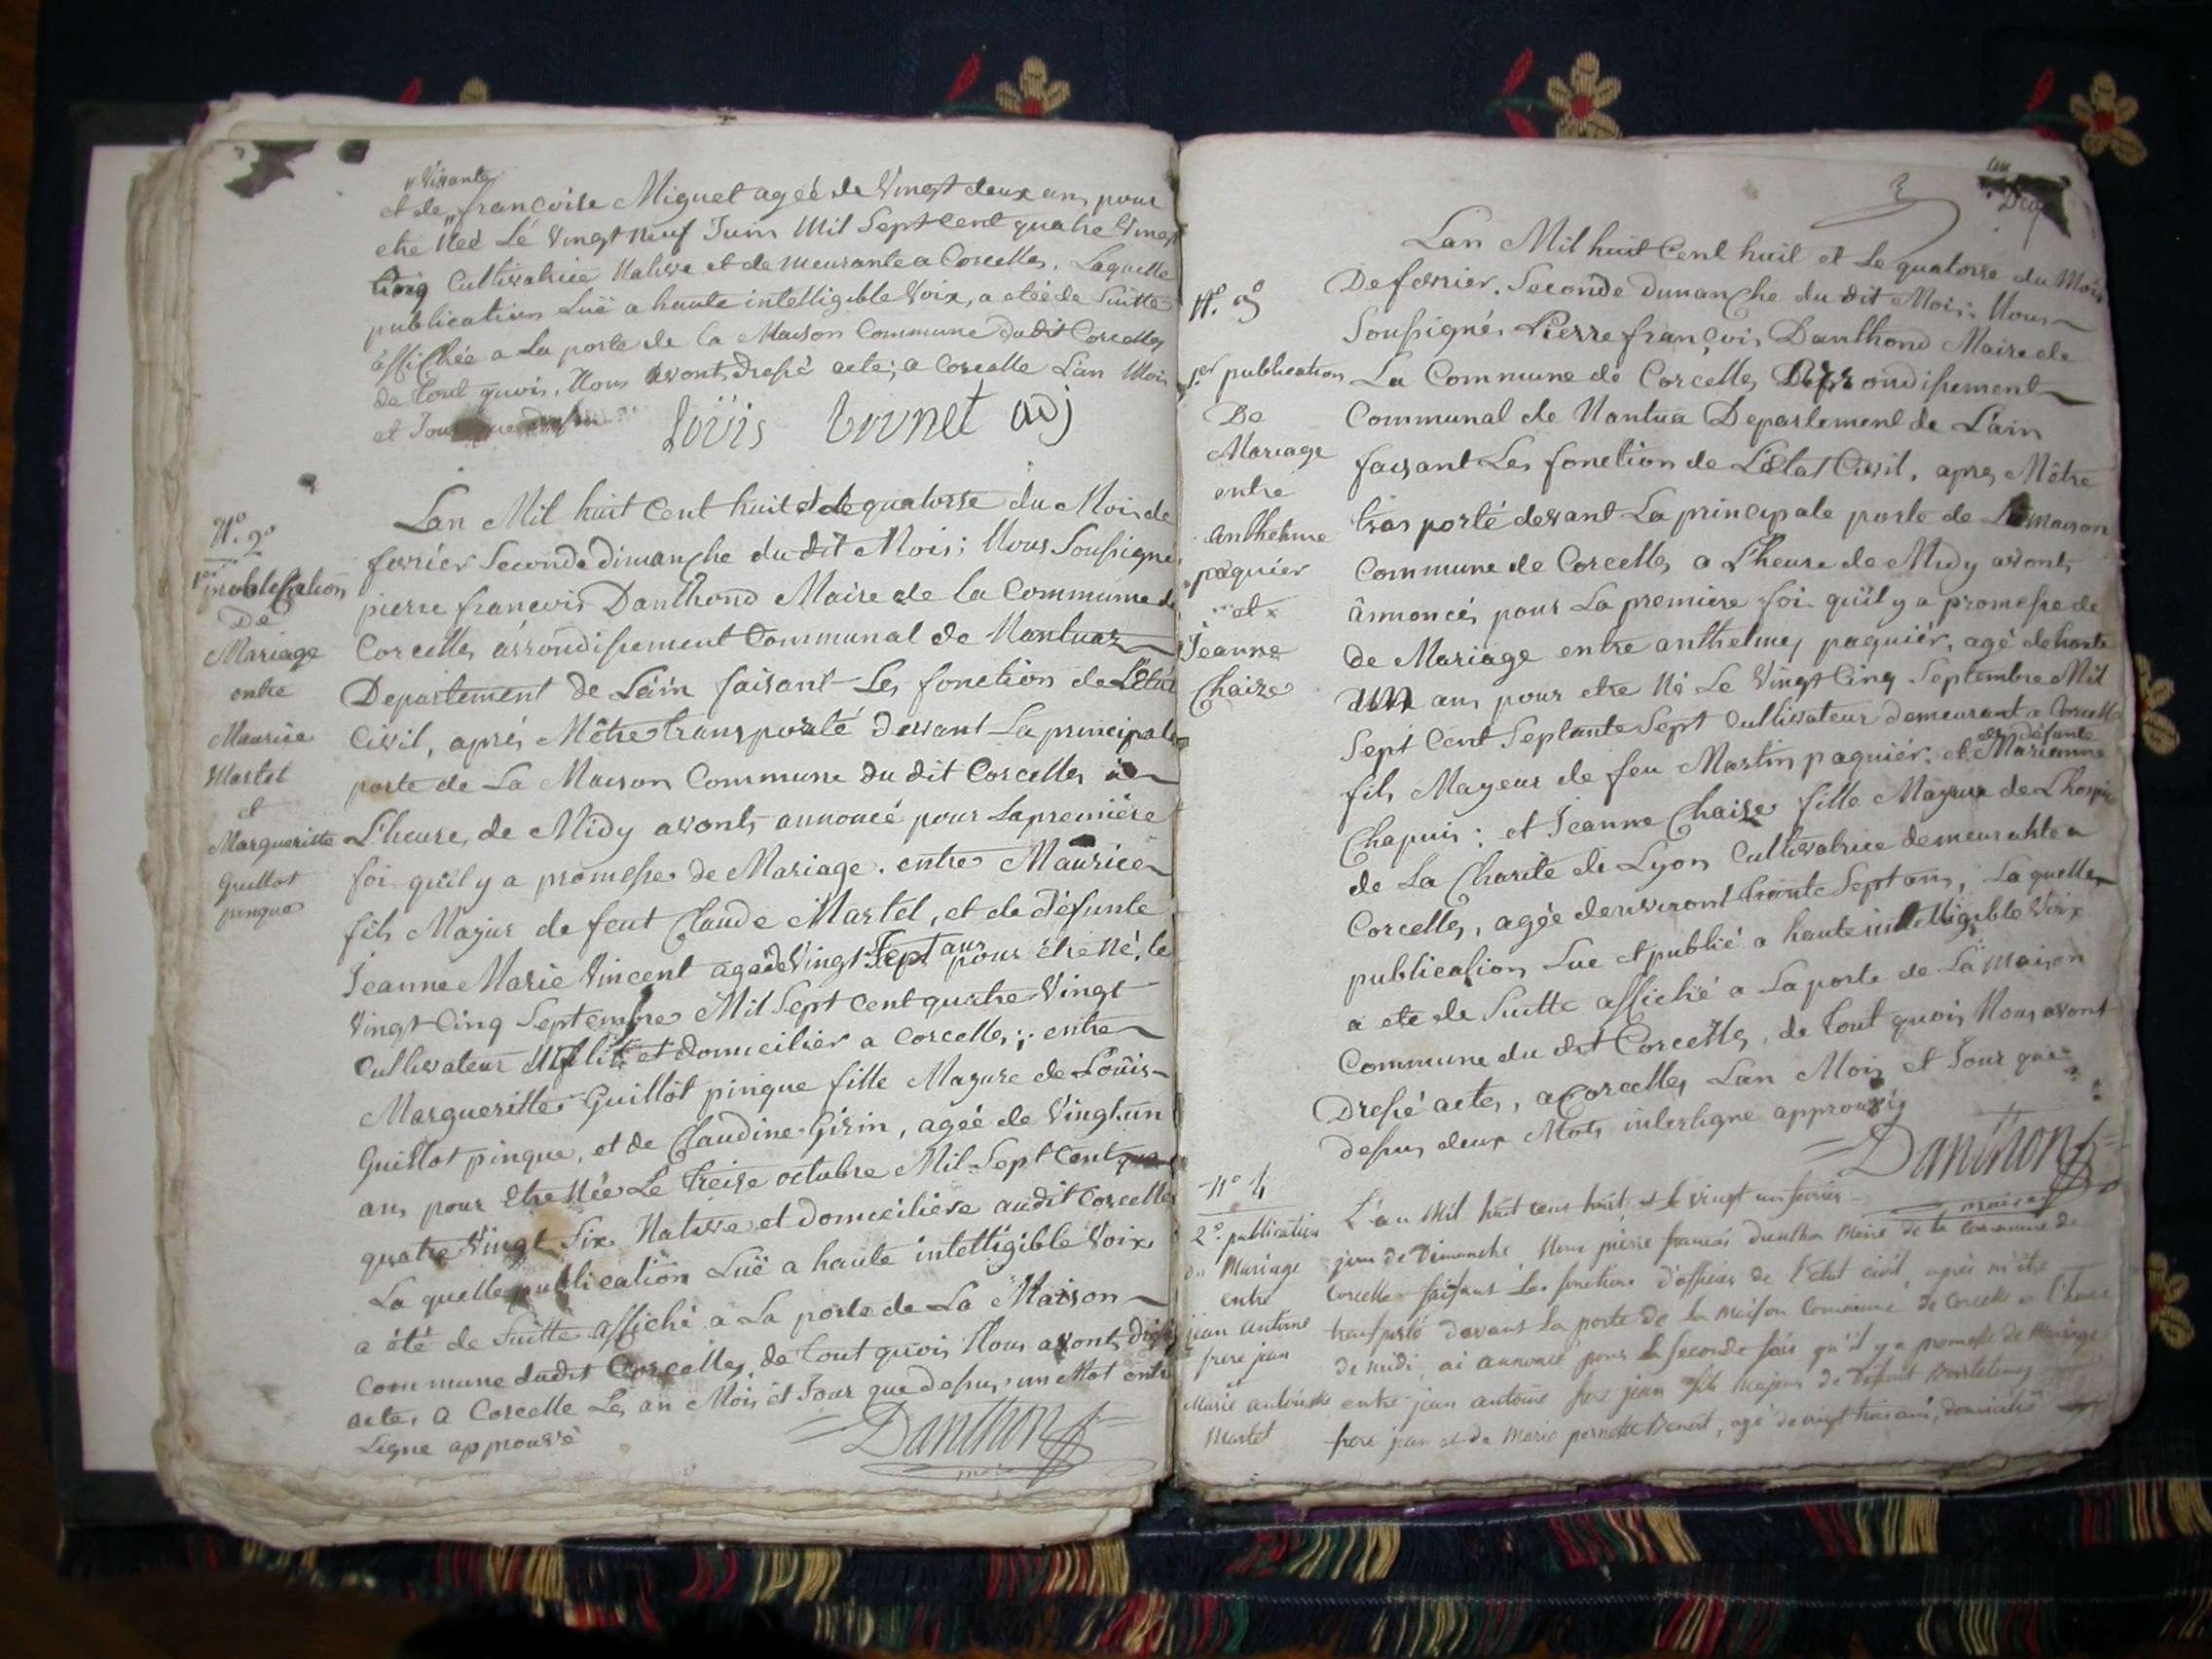 " Vivante
et de " françoise Miguet agéé de Vingt deux ans pour
etre Néé Lé Vingt neuf Juin Mil Sept Cent quatre Vingt
Cinq Cultivatrice Native et demeurante a Corcelles. Laquelle
publication Luë a haute intelligible Voix, a etéé de Suitte
àffichée a La porte de la Maison Commune du dit Corcelles
de tout quoi. Nous avonts dressé acte; a Corcelle L'an Mois
et Jour que dessus
Loüis adj
N.° 2°
1er publication
De
Mariage
entre
Maurice
Martel
et
Margueritte
Guillot
pingue
Lan Mil huit Cent huit et le quatorse du Mois de
fevrier Seconde dimanche du dit Mois; Nous Soussigné
pierre francois Danthond Maire de la Commune de
Corcelles arrondissement Communal de Nantua
Departement de L'ain faisant Les fonction de L'Etat
Civil, aprés M'être transporté devant La principale
porte de La Maison Commune du dit Corcelles à
L'heure, de Midy avonts annoncé pour La première
foi qu'il y a promesse de Mariage. entre Maurice
fils Majur de feut Claude Martel, et de défunte
Jeanne Marie Vincent agé de Vingt Sept ans pour être né, le
Vingt Cinq Septembre Mil Sept Cent quatre Vingt
Cultivateur et domicilier a Corcelles; entre
Margueritte Guillôt pingue fille Majure de Loüis
Guillot pingue, et de Claudine Girin, agéé de Vingt un
ans pour Etre Néé Le treise octobre Mil Sept Cent
quatre Vingt Six Native et domiciliere audit Corcelles
La quelle publication Luë a haute intelligible Voix
a été de Suitte affiché a La porte de La Maison
Commune dudit Corcelles, de tout quoi Nous avonts dressé
acte, a Corcelle Les an Mois et Jour que dessus. un Mot entre
Ligne approuvé
Danthon
maire
3
N.° 3°
1.er publication
De
Mariage
entre
anthelme
paquier
et
Jeanne
Chaise
Lan Mil huit Cent huit et Le quatorse du Mois
De fevrier. Seconde dimanche du dit Mois: Nous
Soussigné Pierre françois Danthond Maire de
La Commune de Corcelles Arrondissement
Communal de Nantua Departement de L'ain
faisant Les fonction de L'Etat Civil, apres M'être
trasporté devant La principale porte de La maison
Commune de Corcelles a L'heure de Midy avonts
ânnoncés pour La premiere foi qu'il y a promesse de
de Mariage entre anthelme paquiér, agé de trante
un ans pour etre Né Le Vingt Cinq Septembre Mil
Sept Cent Septante Sept Cultivateur demeurant a Corcelle
de défunte
fils Mageur de feu Martin paquiér, et Marianne
Chapuis: et Jeanne Chaise fille Majeure de L'hospice
de La Charité de Lyon Cultivatrice demeurahte a
Corcelles, agée denviront trante Sept ans, La quelle
publication Lue et publié a haute intelligible Voix
a ete de Suitte affiché a La porte de La maison
Commune du dit Corcelles, de tout quoi, Nous avont
Dressé acte, a Corcelles Lan Mois et Jour que
dessus deux Mots interligne approuvés
Danthon
maire
N° 4
2.e publication
de Mariage
entre
jean antoine
frere jean
et
Marie antoinette
Martel
L'an Mil huit cens huit et le vingt un fevrier
jour de Dimanche Nous pierre francois danthon Maire de la Commune de
Corcelle faisant les fonctions d'officier de l'etat civil, après m'être
transporté devant la porte de la maison Commune de corcelle a l'heure
de midi, ai annoncé pour la seconde fois qu'il y a promesse de Mariage
entre jean antoine frere jean fils majeur de defunt Bartelemy
frere jean et de Marie pernette Benoit, agé de vingt trois ans, domicilié